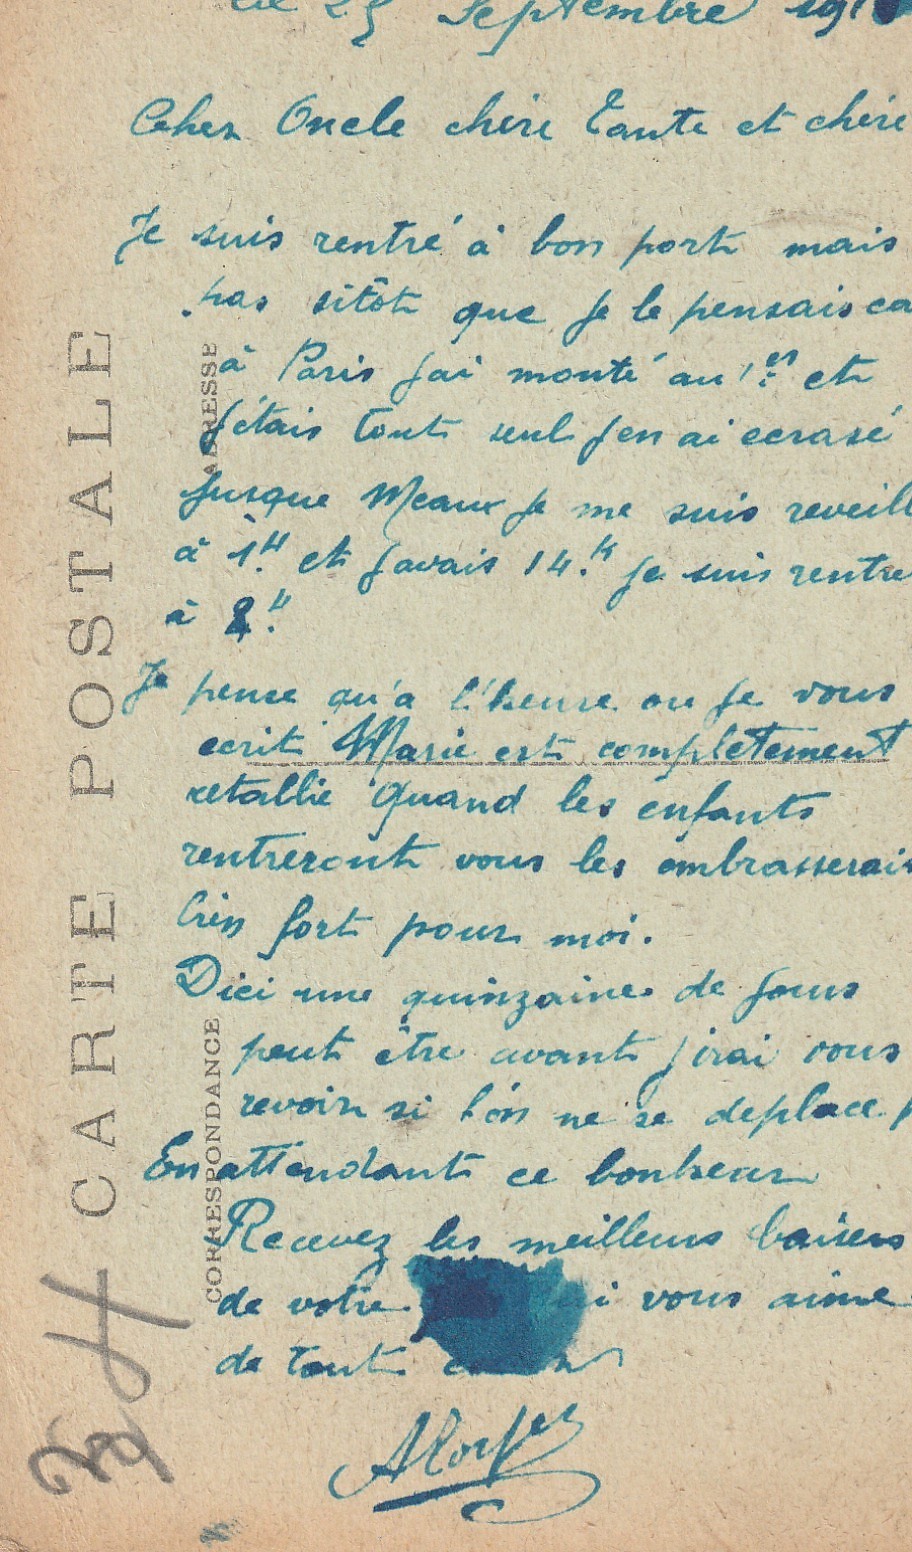 le 25 Septembre 191
Cher Oncle chère Tante et chère
Je suis rentré à bon port mais
pas sitôt que je le pensais ca
à Paris j'ai monté au 1er et
j'étais tout seul j'en ai ecrasé
jusque Meaux je me suis reveill
à 1H et j'avais 14.K je suis rentre
à 2H
Je pense qu'a l'heure ou je vous
ecrit Marie est complètement
retablie Quand les enfants
rentreront vous les embrasserais
bien fort pour moi.
Dici une quinzaine de jours
peut être avant j'irai vous
revoir si l'on ne se deplace p
En attendant ce bonheur
Recevez les meilleurs baisers
de votre ui vous aime
de tout
CARTE POSTALE
ADRESSE
CORRESPONDANCE